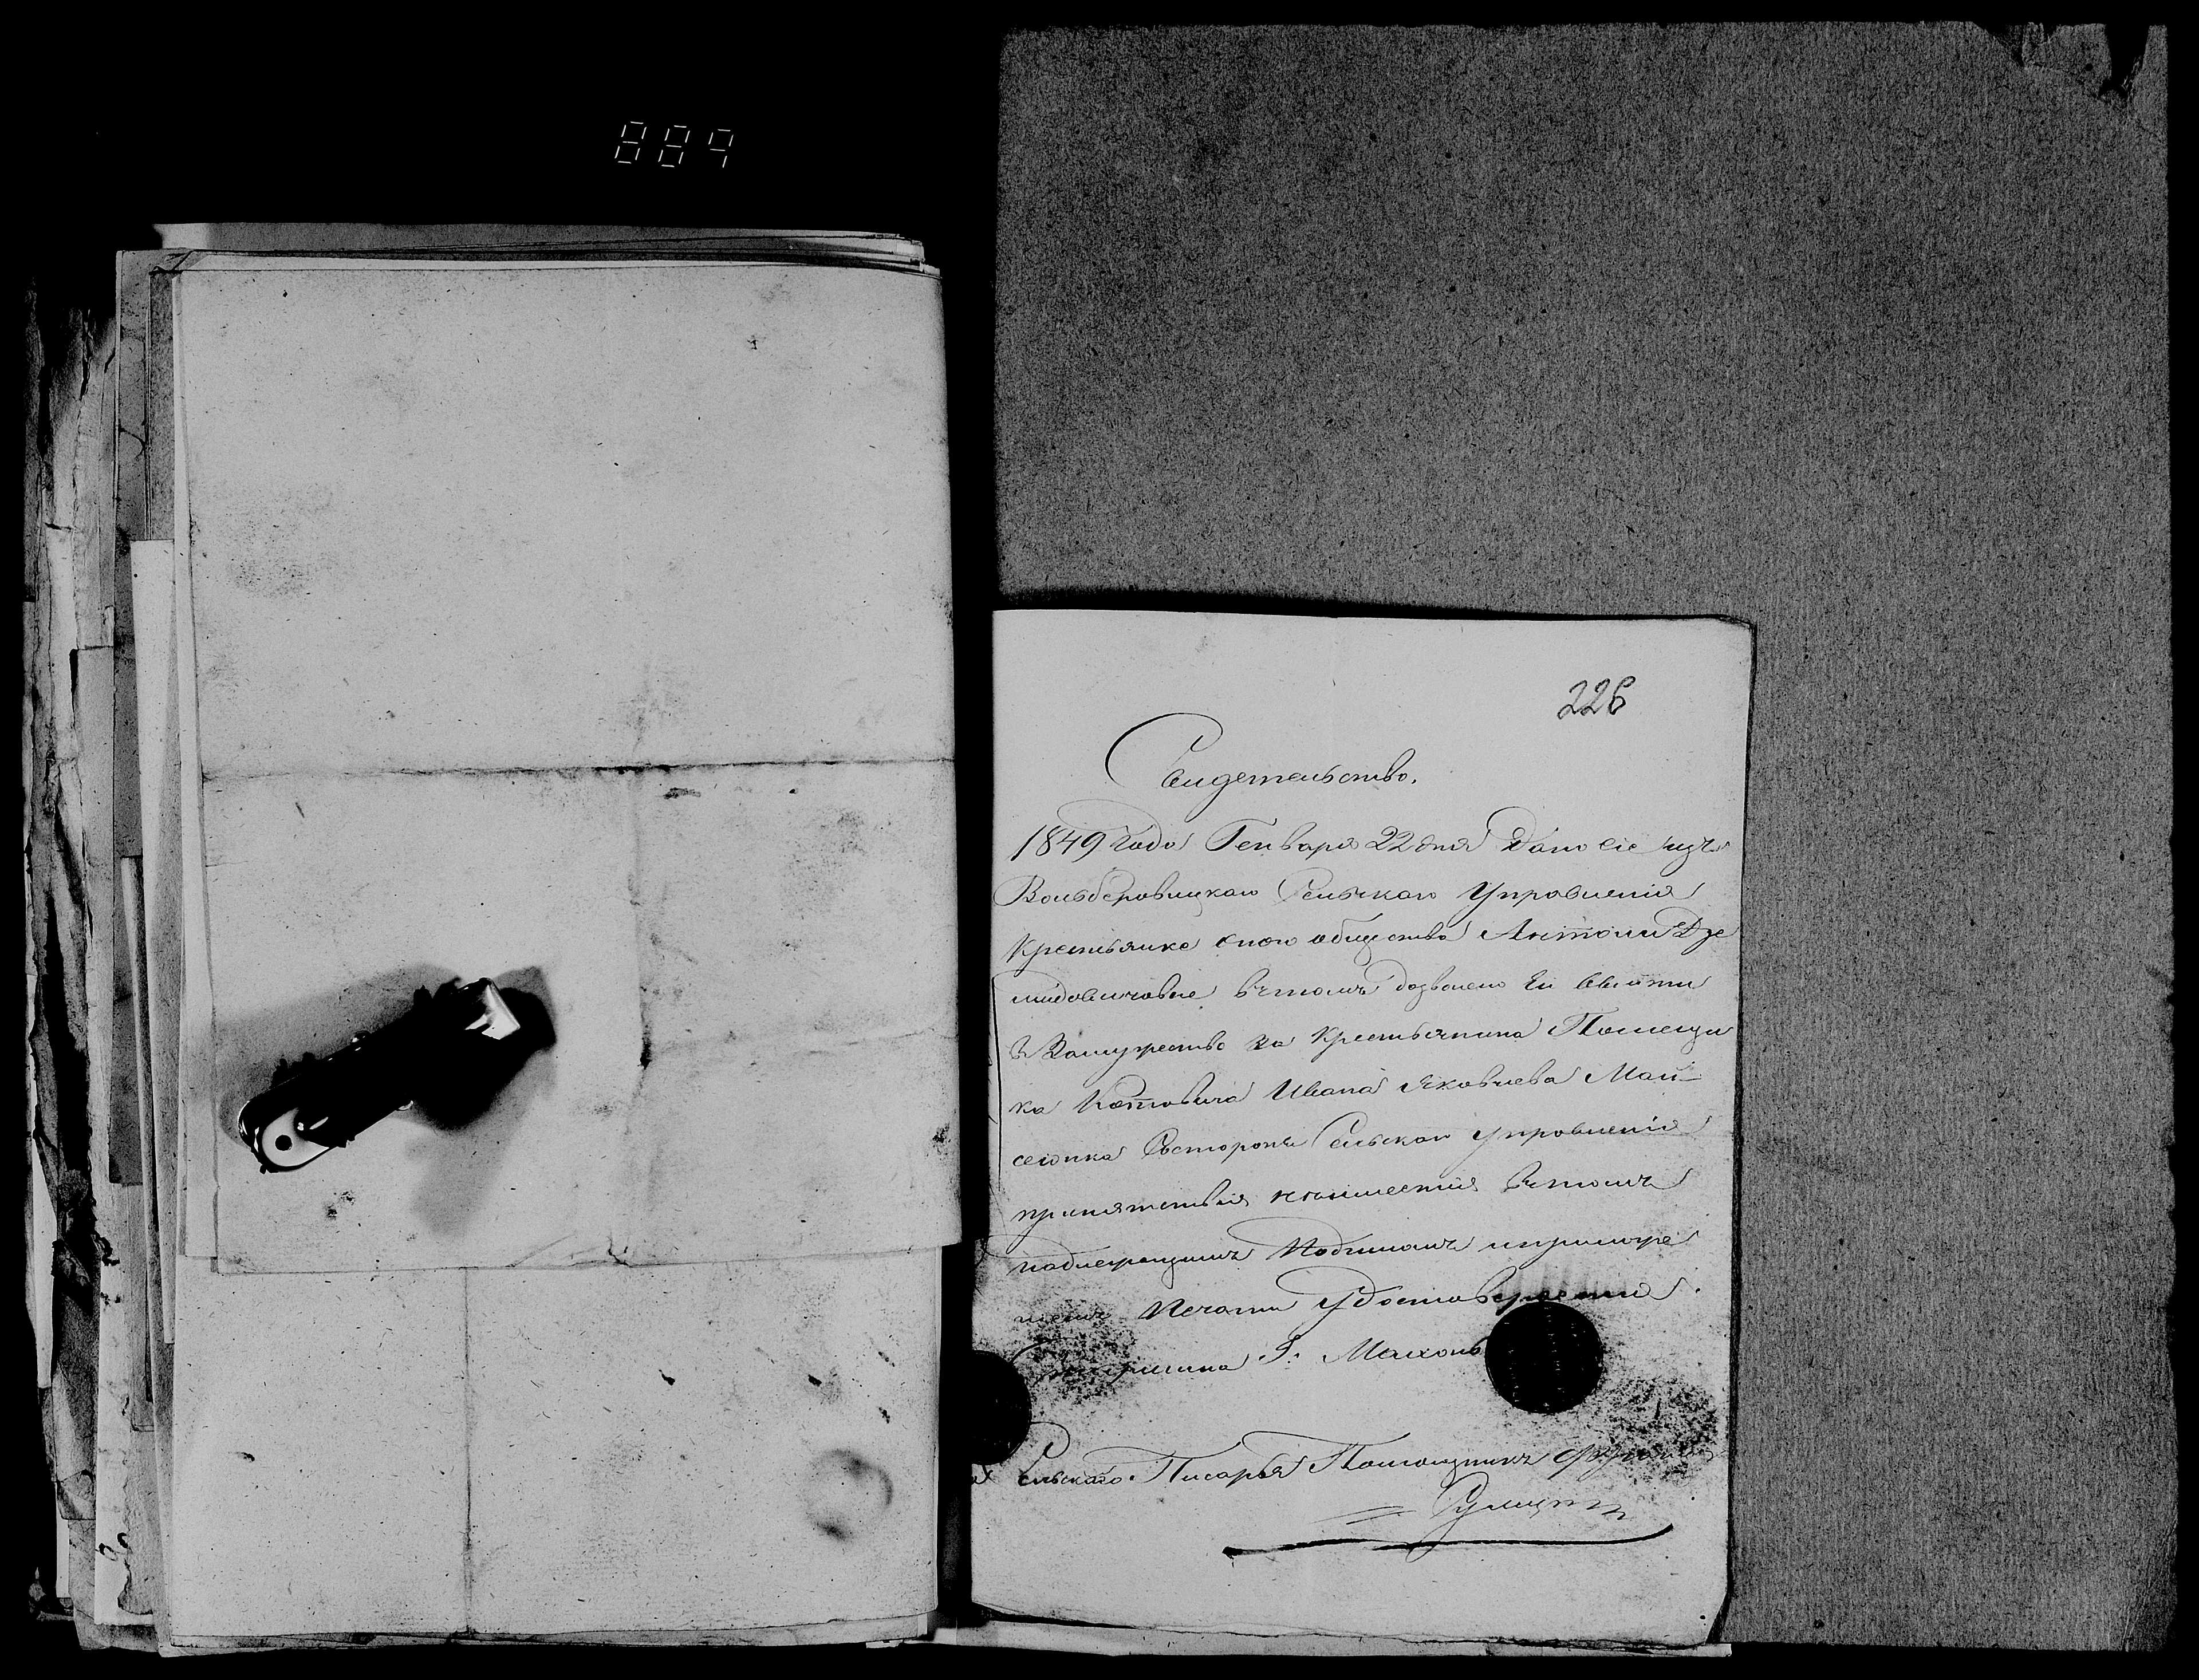 889
226
Свидетельство.
1849 года Генваря 22 дня Дано сіе изъ
Вольберовицкаго Сельскаго Управленія
Крестьянке сего общества Антоли Дзе
мидовичовне въ томъ дозволено Ей выйти
в Замужество за Крестьянина Помещи
ка Котовича Ивана Яковлева Май-
сеюнка Состороны Сельскаго управленія
препятствія неимеется вътомъ
надлежащимъ Подписомъ иприложе
ніемъ Печати Удостоверяется.
Старшина Г.
Сельскаго Писаря Помощникъ